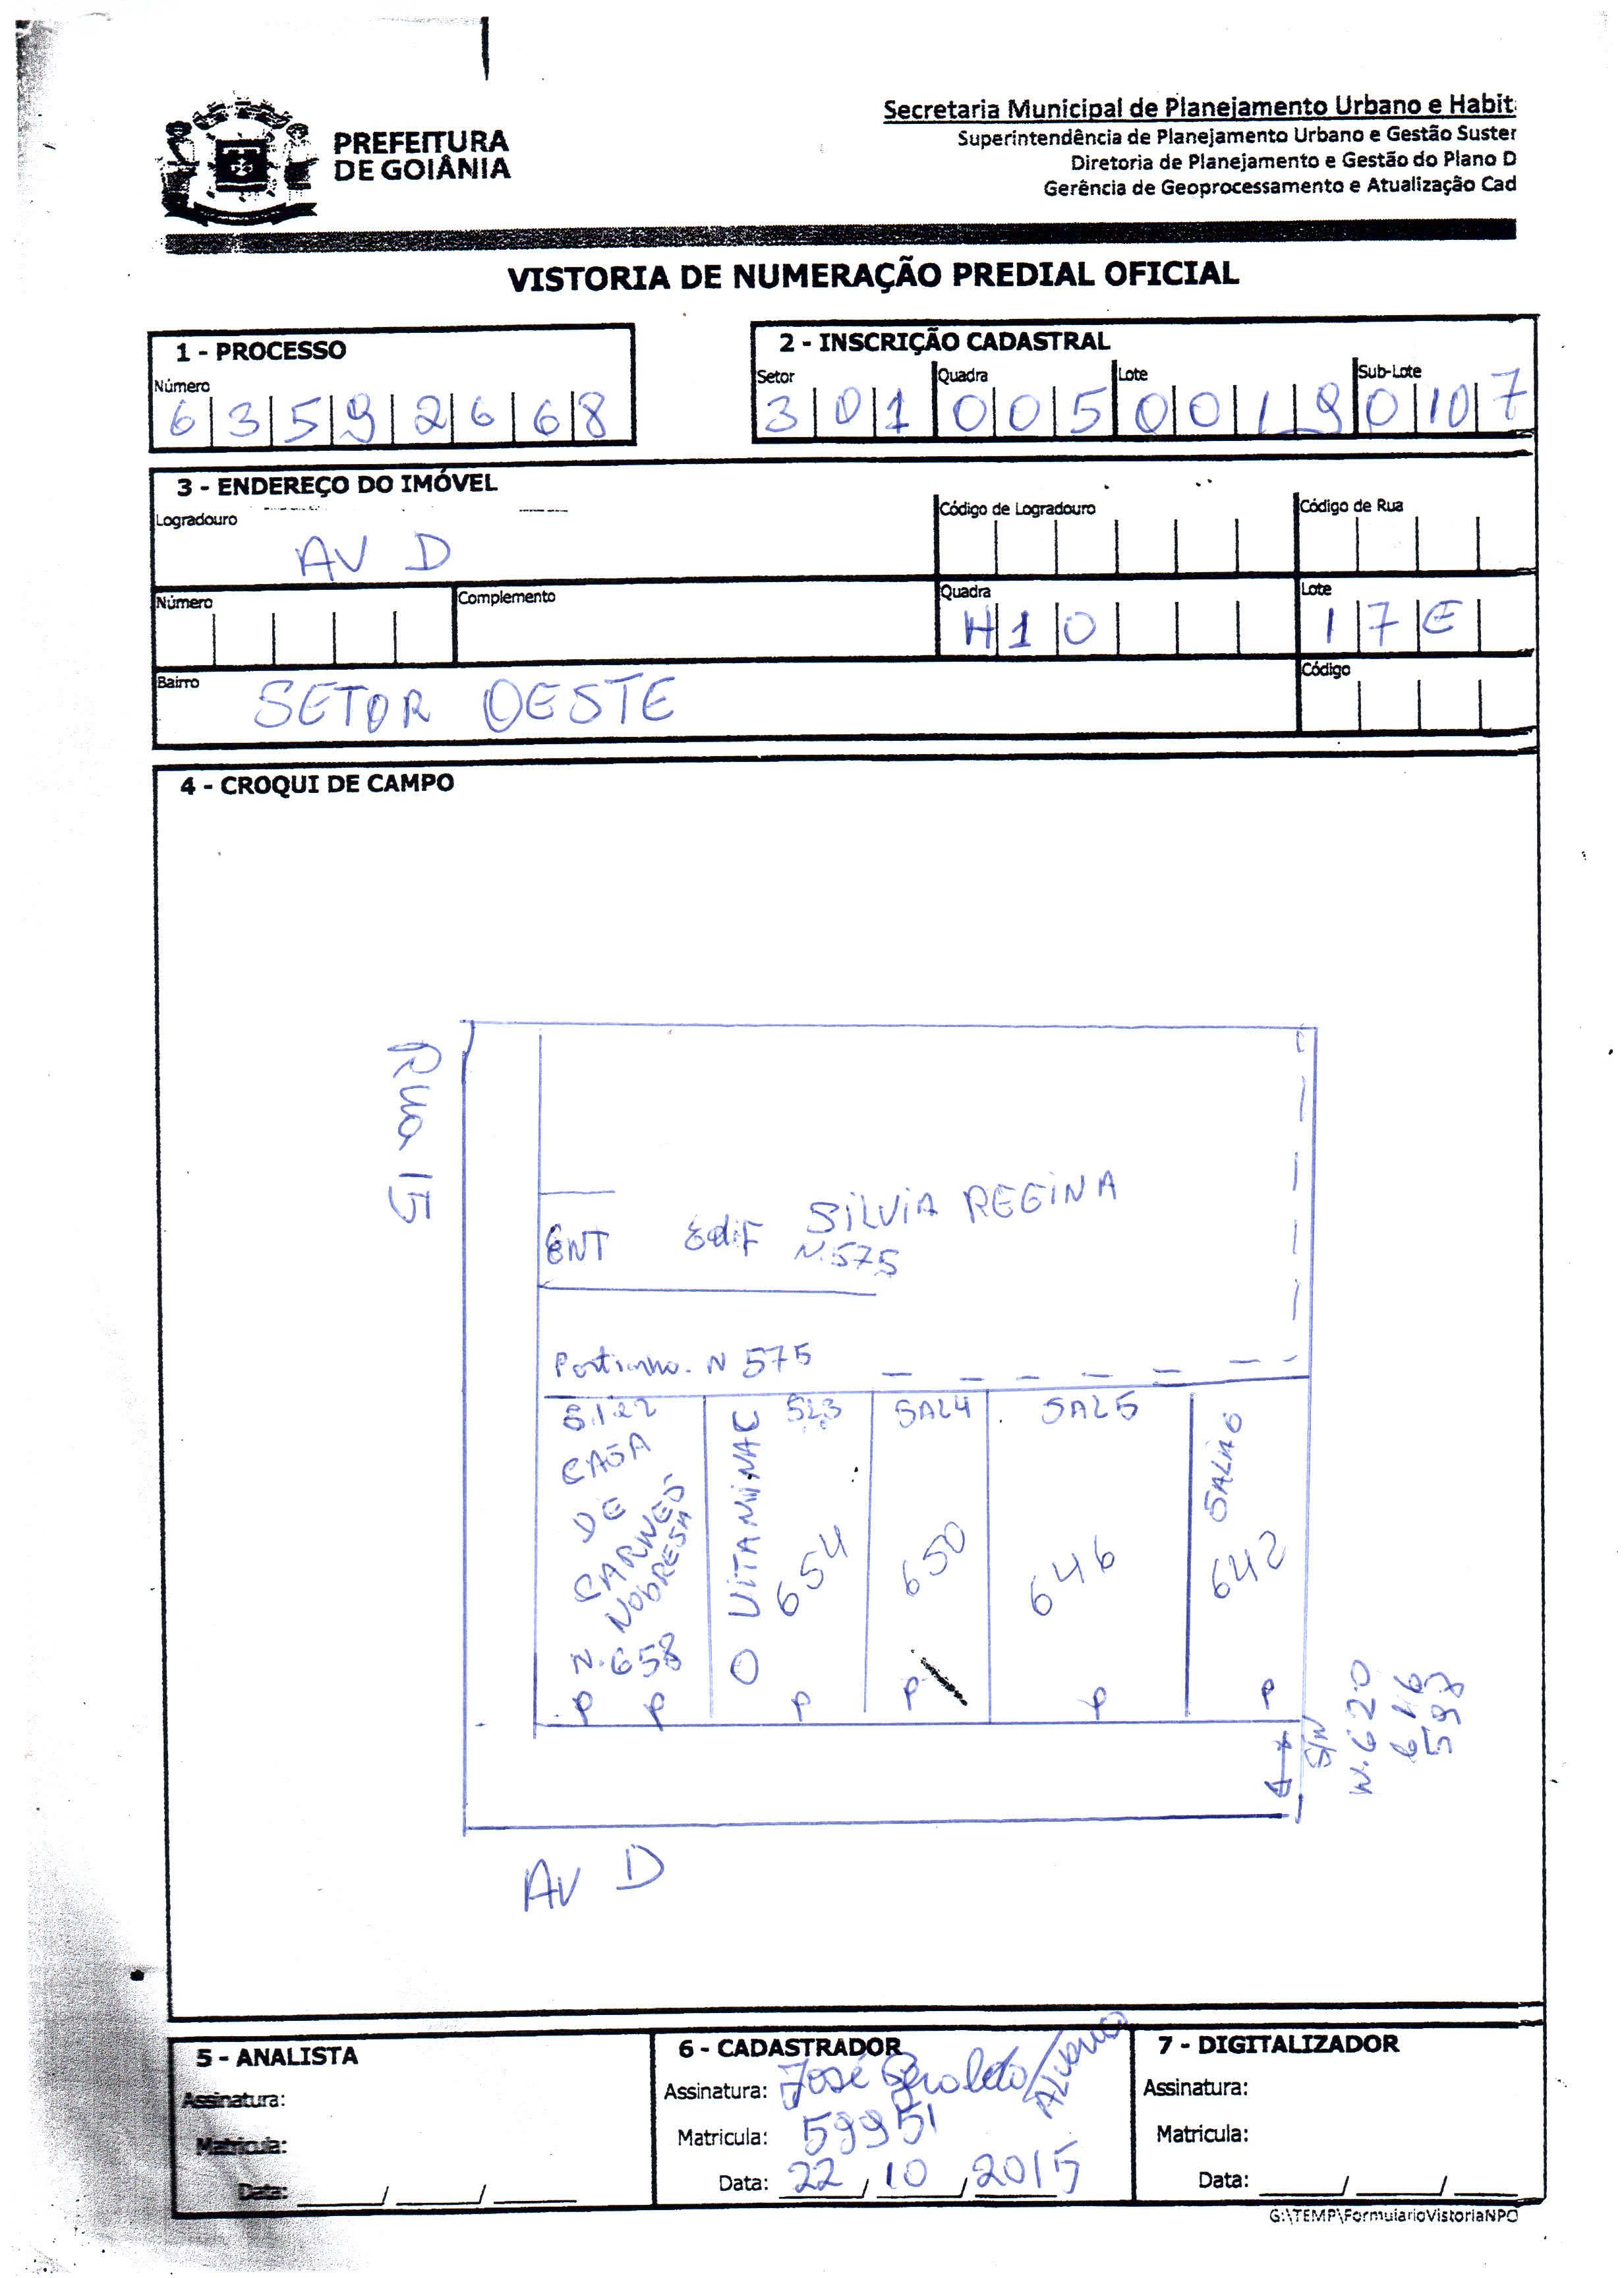 PREFEITURA
DE GOIÂNIA
Secretaria Municipal de Planejamento Urbano e Habit
Superintendência de Planejamento Urbano e Gestão Suster
Diretoria de Planejamento e Gestão do Plano D
Gerência de Geoprocessamento e Atualização Cad
VISTORIA DE NUMERAÇÃO PREDIAL OFICIAL
1 - PROCESSO
Número
6 3 5 9 2 6 6 8
2 - INSCRIÇÃO CADASTRAL
Setor Quadra Lote Sub-Lote
3 0 1 0 0 5 0 0 1 9 0 10 7
3 - ENDEREÇO DO IMÓVEL
Logradouro Código de Logradouro Código de Rua
AV D
Número Complemento Quadra Lote
H 1 0 1 7 E
Bairro Código
SETOR OESTE
4 - CROQUI DE CAMPO
Rua 15
ENT Edif SILVIA REGINA
N. 575
N 575
CASA
DE
CARNES
NOBRES
N. 658
P P
SL3
O VITAMINAC
654
P
SAL4
650
P
SAL5
646
P
SALA 6
642
P
S/N
N. 620
616
598
AV D
5 - ANALISTA
Assinatura:
Matrícula:
Data: / /
6 - CADASTRADOR
Assinatura: José Geraldo
Matricula: 59951
Data: 22 / 10 / 2015
7 - DIGITALIZADOR
Assinatura:
Matricula:
Data: / /
G:\TEMP\FormularioVistoriaNPO